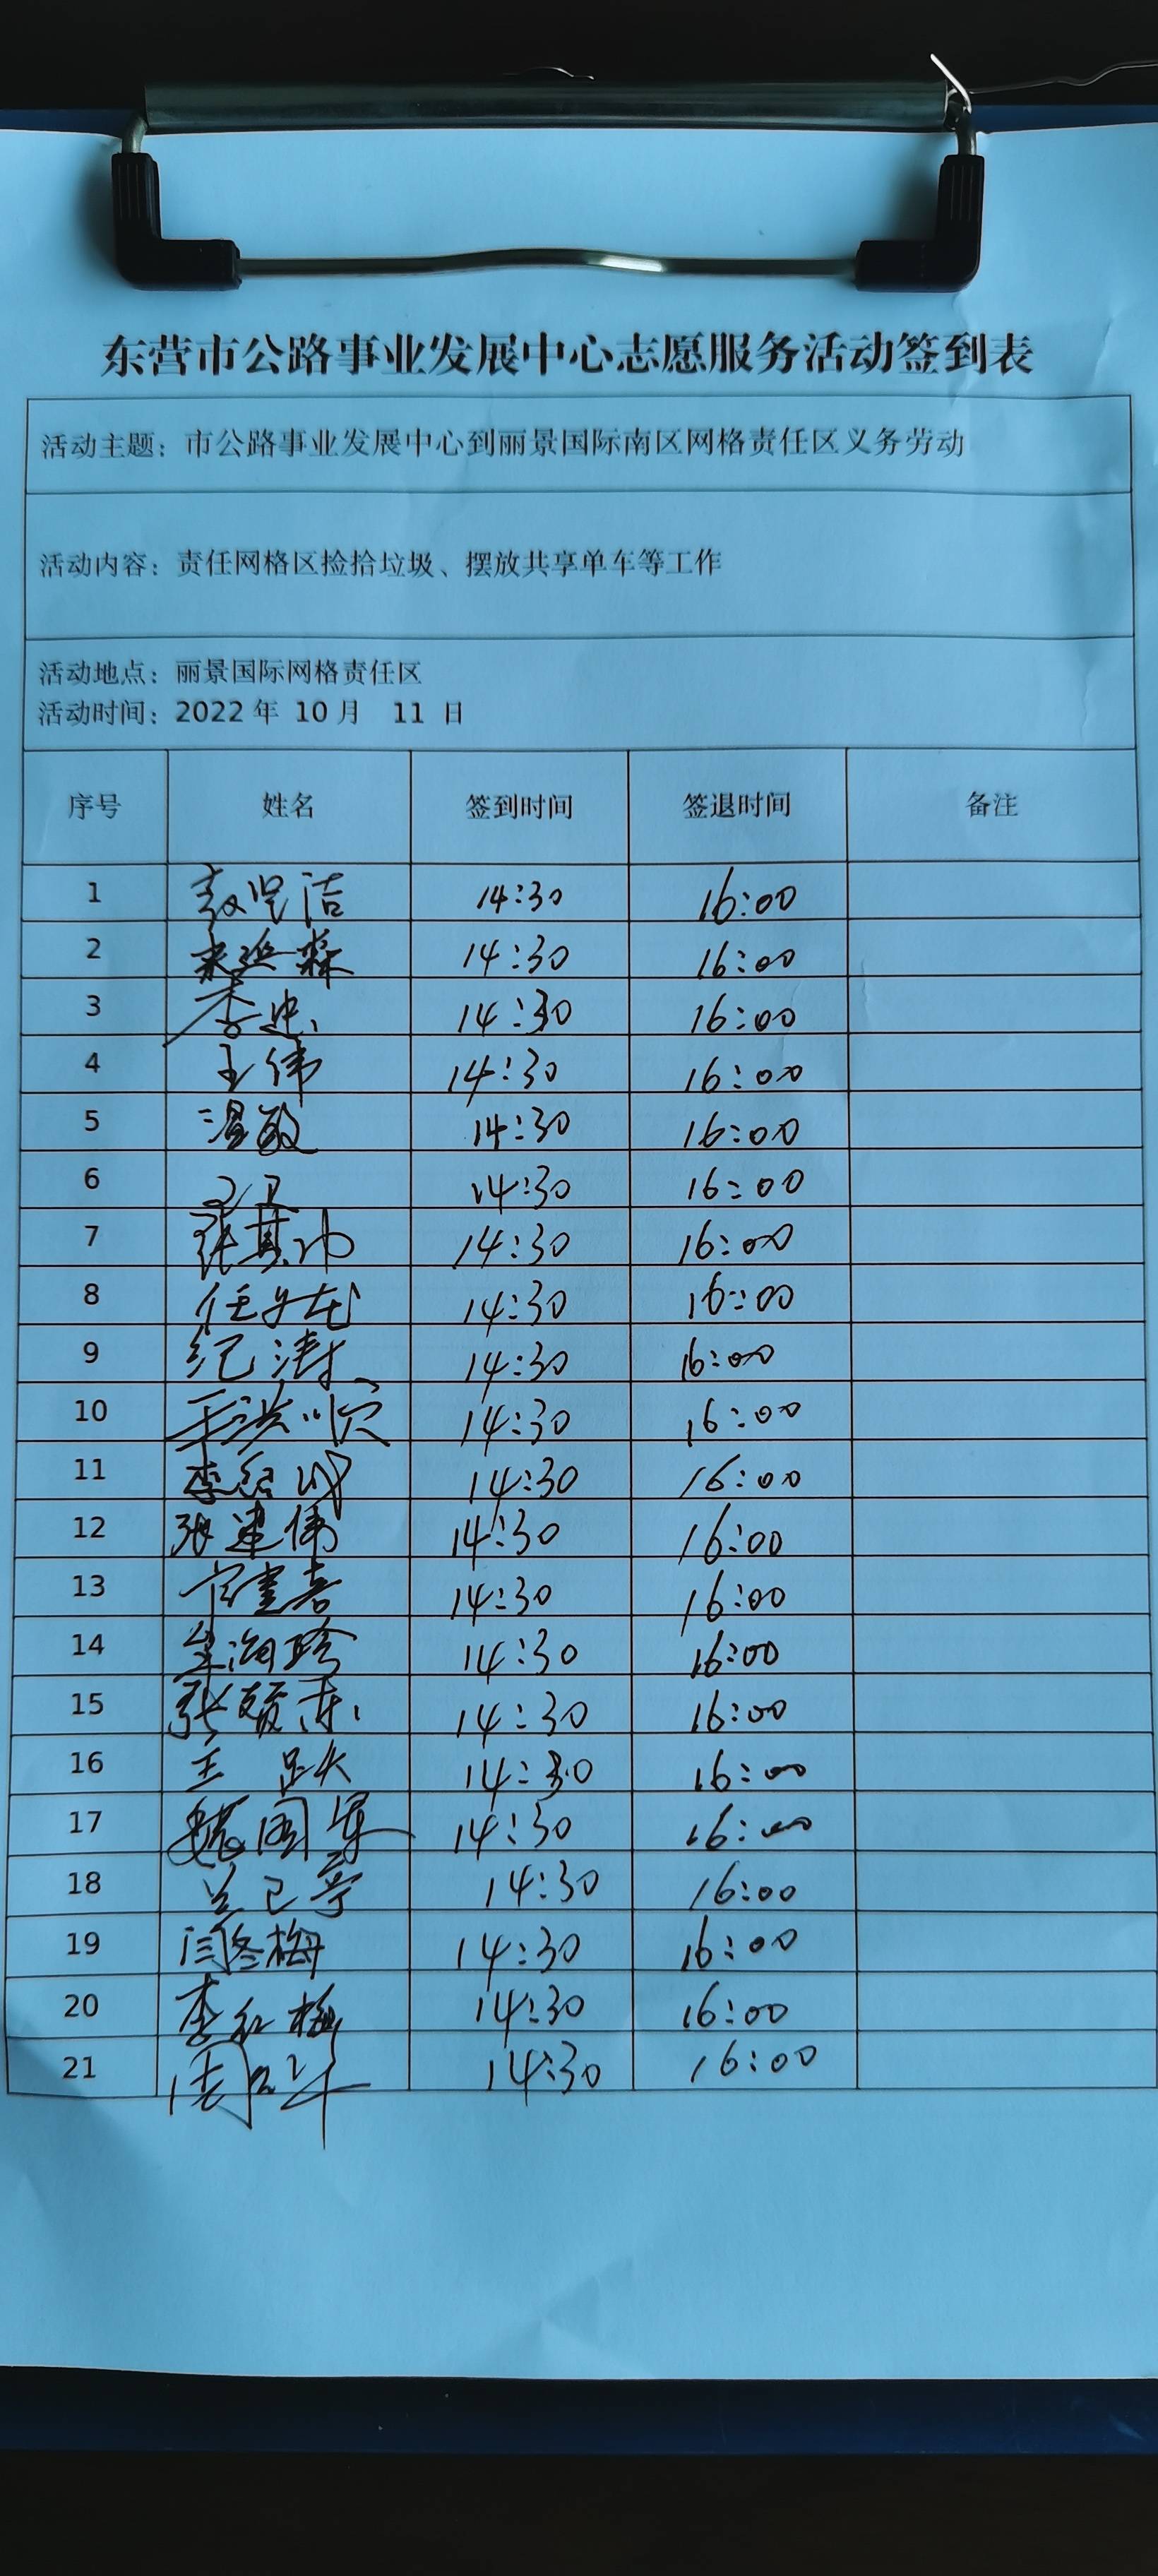 东营市公路事业发展中心志愿服务活动签到表
活动主题：市公路事业发展中心到丽景国际南区网格责任区义务劳动
活动内容：责任网格区捡拾垃圾、摆放共享单车等工作
活动地点：丽景国际网格责任区
活动时间：2022年 10月 11 日
序号 姓名 签到时间 签退时间 备注
1 14:30 16:00
2 14:30 16:00
3 李忠 14:30 16:00
4 王伟 14:30 16:00
5 温敏 14:30 16:00
6 14:30 16:00
7 张其 14:30 16:00
8 任 14:30 16:00
9 纪涛 14:30 16:00
10 14:30 16:00
11 李 14:30 16:00
12 张建伟 14:30 16:00
13 14:30 16:00
14 14:30 16:00
15 张 14:30 16:00
16 王 14:30 16:00
17 魏国军 14:30 16:00
18 14:30 16:00
19 闫冬梅 14:30 16:00
20 李红梅 14:30 16:00
21 周 14:30 16:00